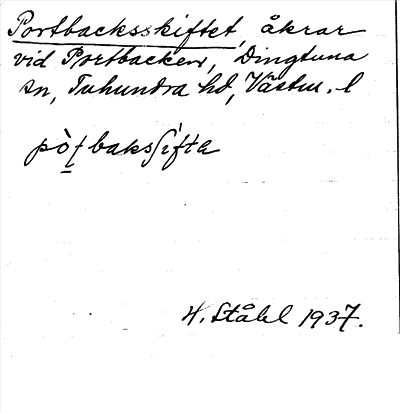 Portbacksskiftet, åkrar
vid Portbacken, Dingtuna
sn, Tuhundra hd, Västm. l
pò̱ʈbaksʃifta
H. Ståhl 1937.